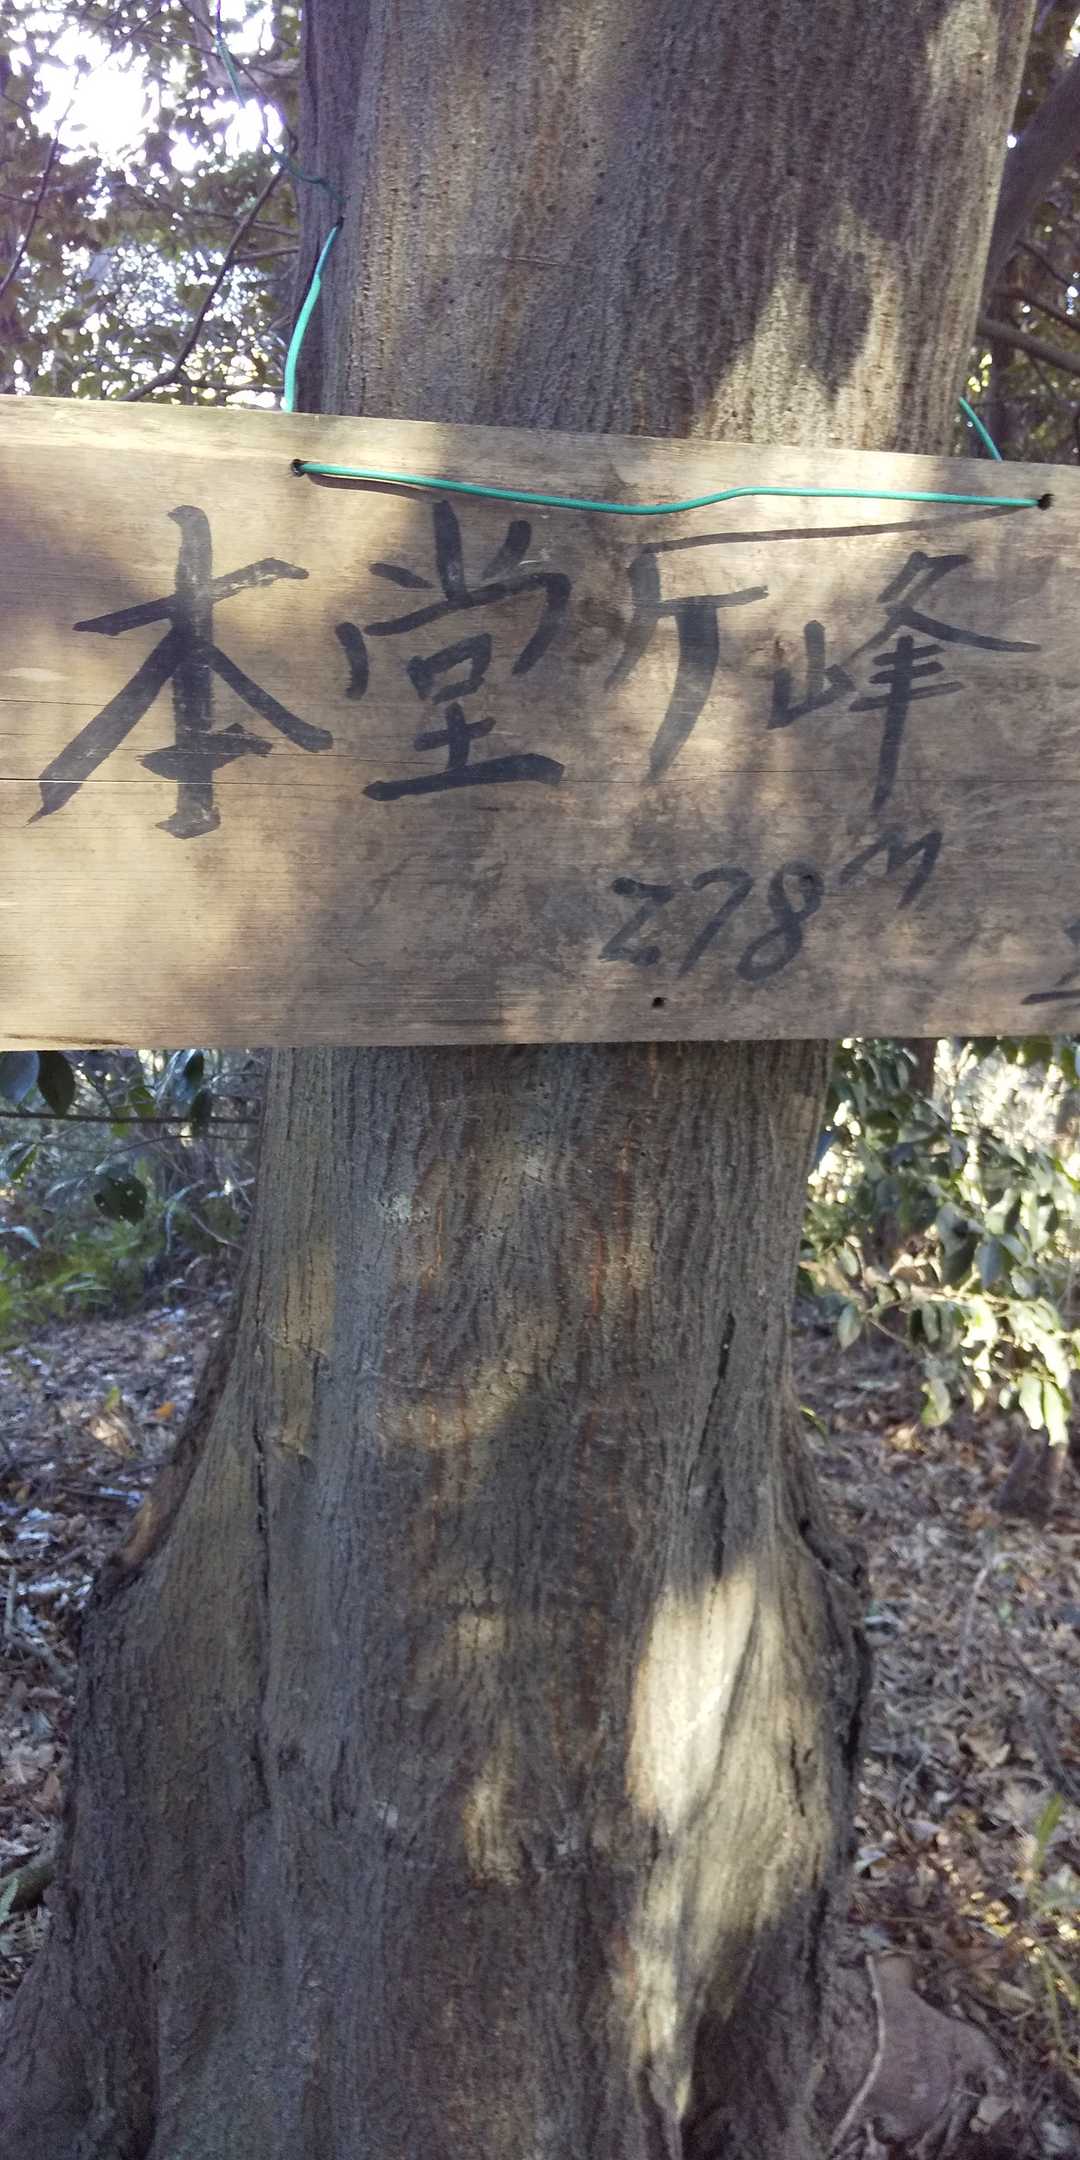 本堂ヶ峰
278m